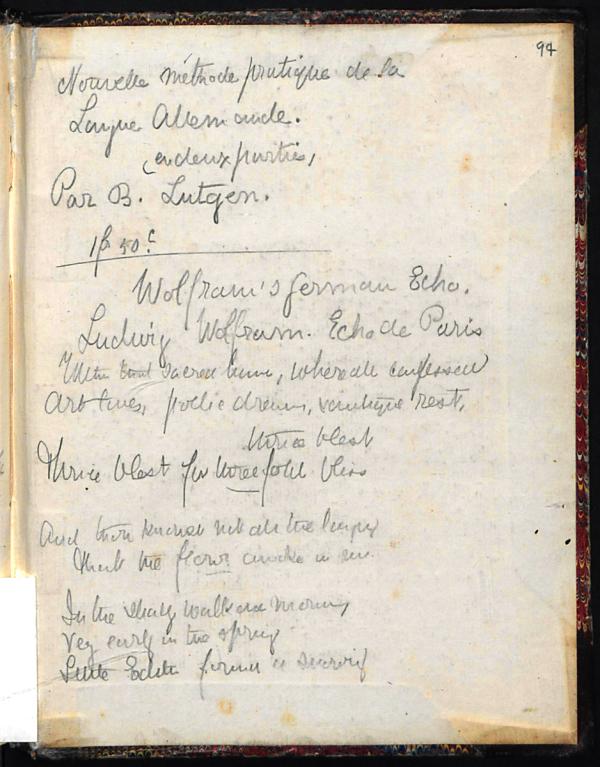 94
Nouvelle méthode pratique de la
Langue Allemande.
en deux parties,
Par B. Lutgen.
1f 50c
Wolfram's German Echo.
Ludwig Wolfram. Echo de Paris
sacred, where all confessed
Art lives, poetic dreams, rest,
Thrice blest
Thrice blest for threefold bliss
And thou knowest not all the
That the flows awoke in me.
In the shady walk one morning
Very early in the spring
Little Edith